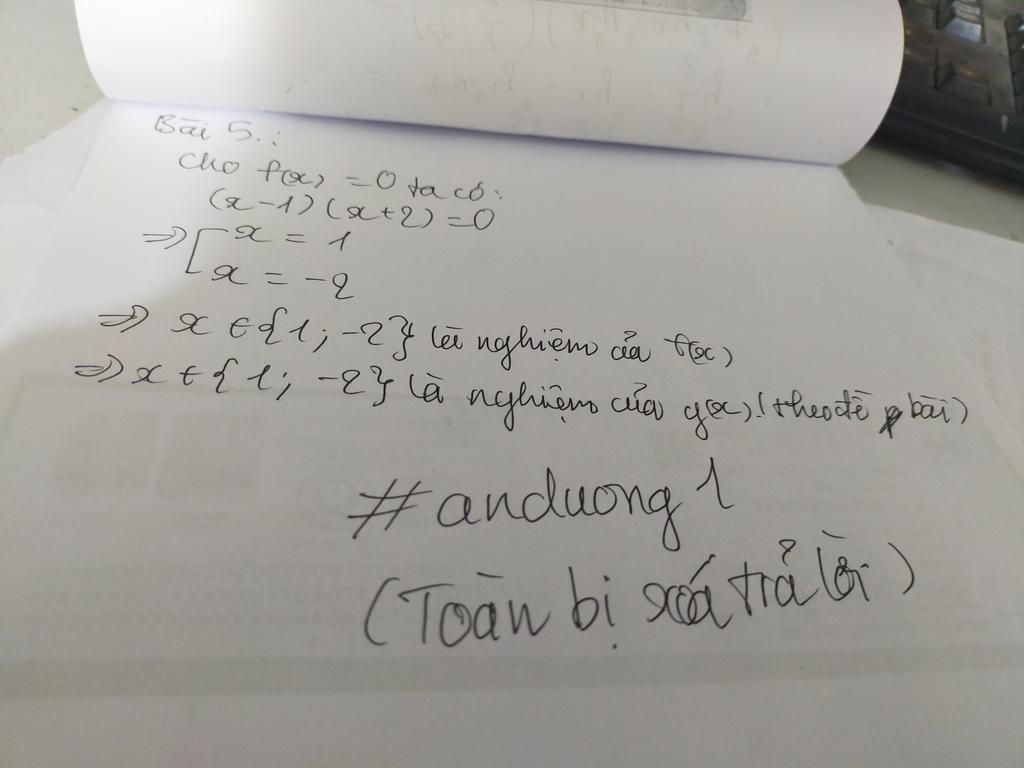 Bài 5.:
Cho f(x) = 0 ta có:
(x-1)(x+2)=0
=> [ x = 1
x = -2
=> x ∈ {1; -2} là nghiệm của f(x)
=> x ∈ {1; -2} là nghiệm của g(x) (theo đề bài)
#anduong1
(Toàn bị xoá trả lời)